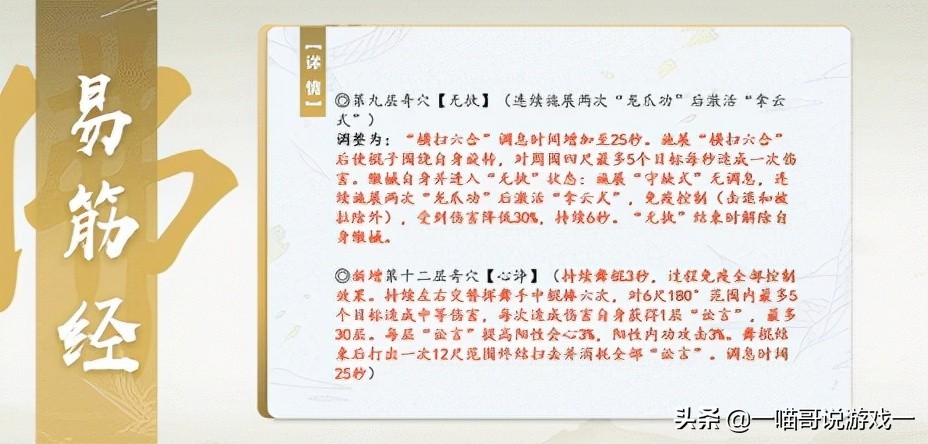 易筋经
【详情】
◎第九层奇穴【无执】（连续施展两次“龙爪功”后激活“拿云
式”）
调整为：“横扫六合”调息时间增加至25秒。施展“横扫六合”
后使棍子围绕自身旋转，对周围四尺最多5个目标每秒造成一次伤
害。缴械自身并进入“无执”状态：施展“守缺式”无调息，连
续施展两次“龙爪功”后激活“拿云式”，免疫控制（击退和被
拉除外），受到伤害降低30%，持续6秒。“无执”结束时解除自
身缴械。
◎新增第十二层奇穴【心诤】（持续舞棍3秒，过程免疫全部控制
效果。持续左右交替挥舞手中棍棒六次，对6尺180°范围内最多5
个目标造成中等伤害，每次造成伤害自身获得1层“讼言”，最多
30层。每层“讼言”提高阳性会心3%，阳性内功攻击3%。舞棍结
束后打出一次12尺范围终结扫击并消耗全部“讼言”。调息时间
25秒）
头条 @一喵哥说游戏一